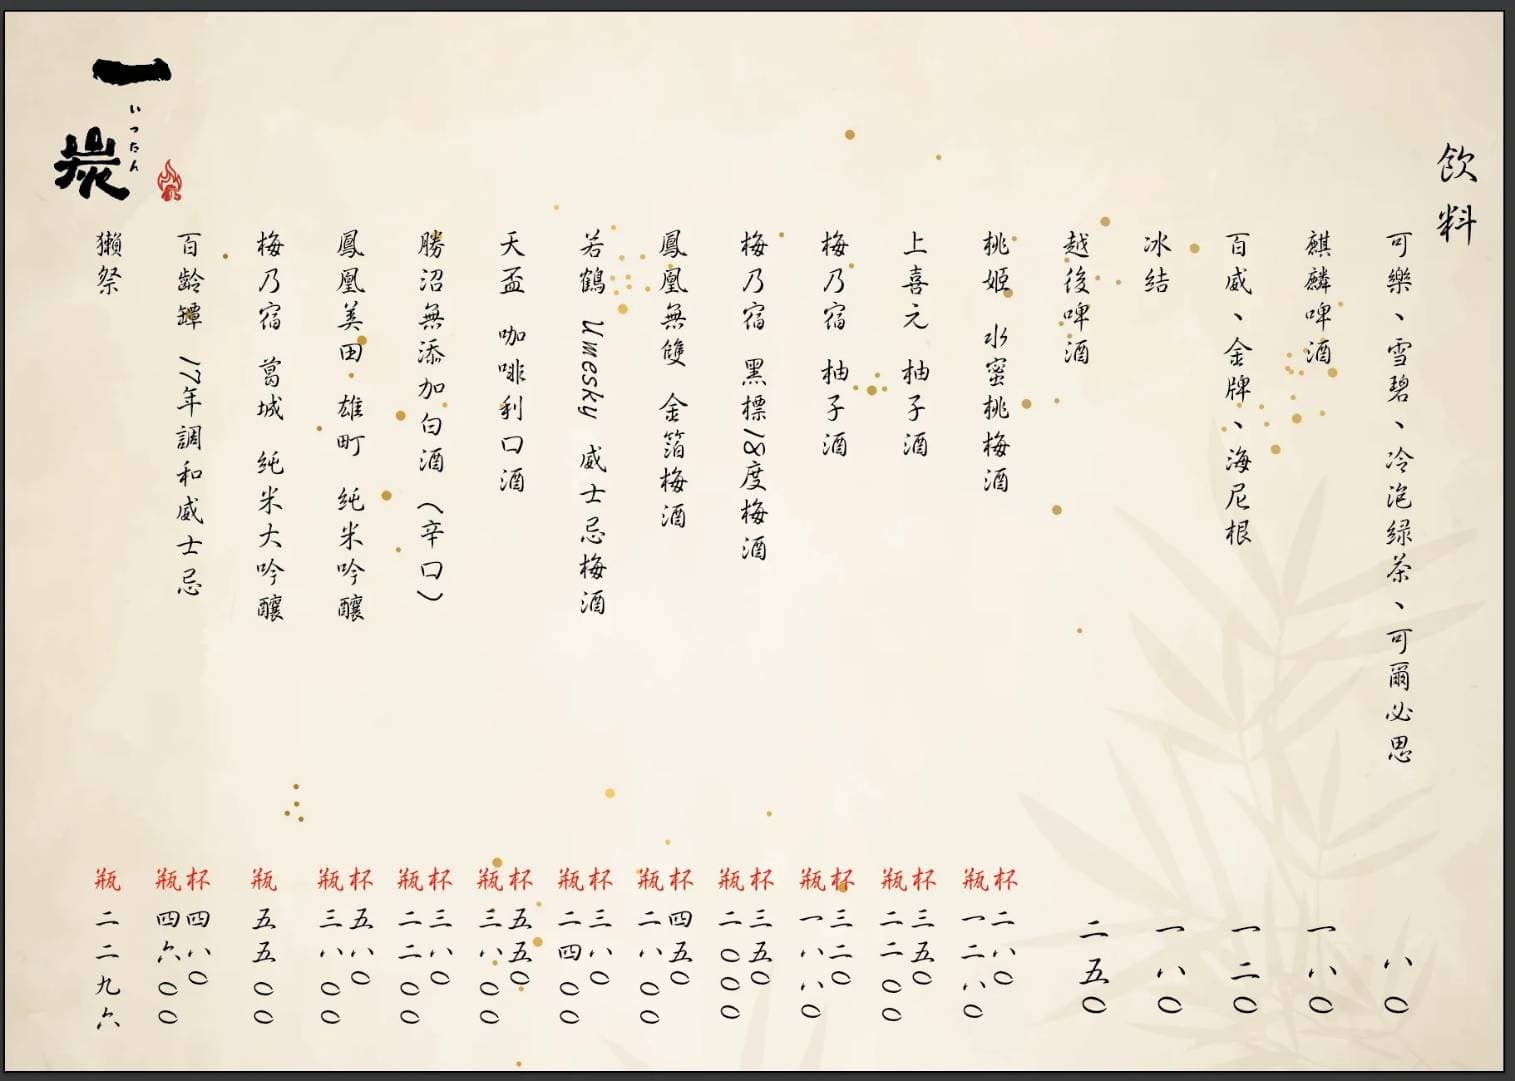 飲料
可樂、雪碧、冷泡綠茶、可爾必思 八〇
麒麟啤酒 一八〇
百威、金牌、海尼根 一二〇
冰結 一八〇
越後啤酒 二五〇
桃姬 水蜜桃梅酒 杯 二八〇 瓶 一二八〇
上喜元 柚子酒 杯 三五〇 瓶 二二〇〇
梅乃宿 柚子酒 杯 三二〇 瓶 一八八〇
梅乃宿 黑標18度梅酒 杯 三五〇 瓶 二〇〇〇
鳳凰無雙 金箔梅酒 杯 四五〇 瓶 二八〇〇
若鶴 Umesky 威士忌梅酒 杯 三八〇 瓶 二四〇〇
天盃 咖啡利口酒 杯 五五〇 瓶 三八〇〇
勝沼無添加白酒（辛口） 杯 三八〇 瓶 二二〇〇
鳳凰美田・雄町 純米吟釀 杯 五八〇 瓶 三八〇〇
梅乃宿 葛城 純米大吟釀 瓶 五五〇〇
百齡罈 17年調和威士忌 杯 四八〇 瓶 四六〇〇
獺祭 瓶 二二九六
一炭
いったん